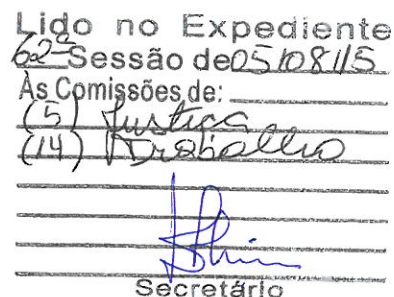 Lido no Expediente
62ª Sessão de 05/08/15
Às Comissões de:
(5) Justiça
(14) Trabalho
Secretário